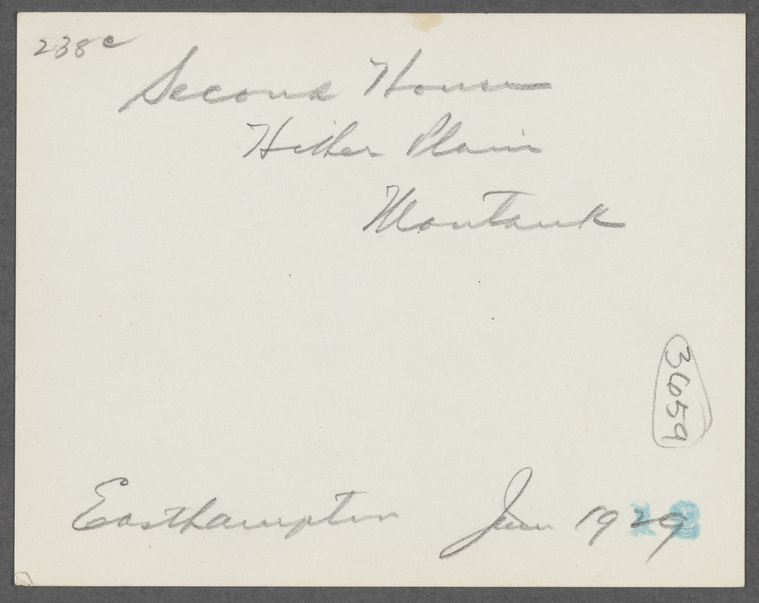 238c
Second House
Hither Plain
Montauk
3659
Easthampton June 1929